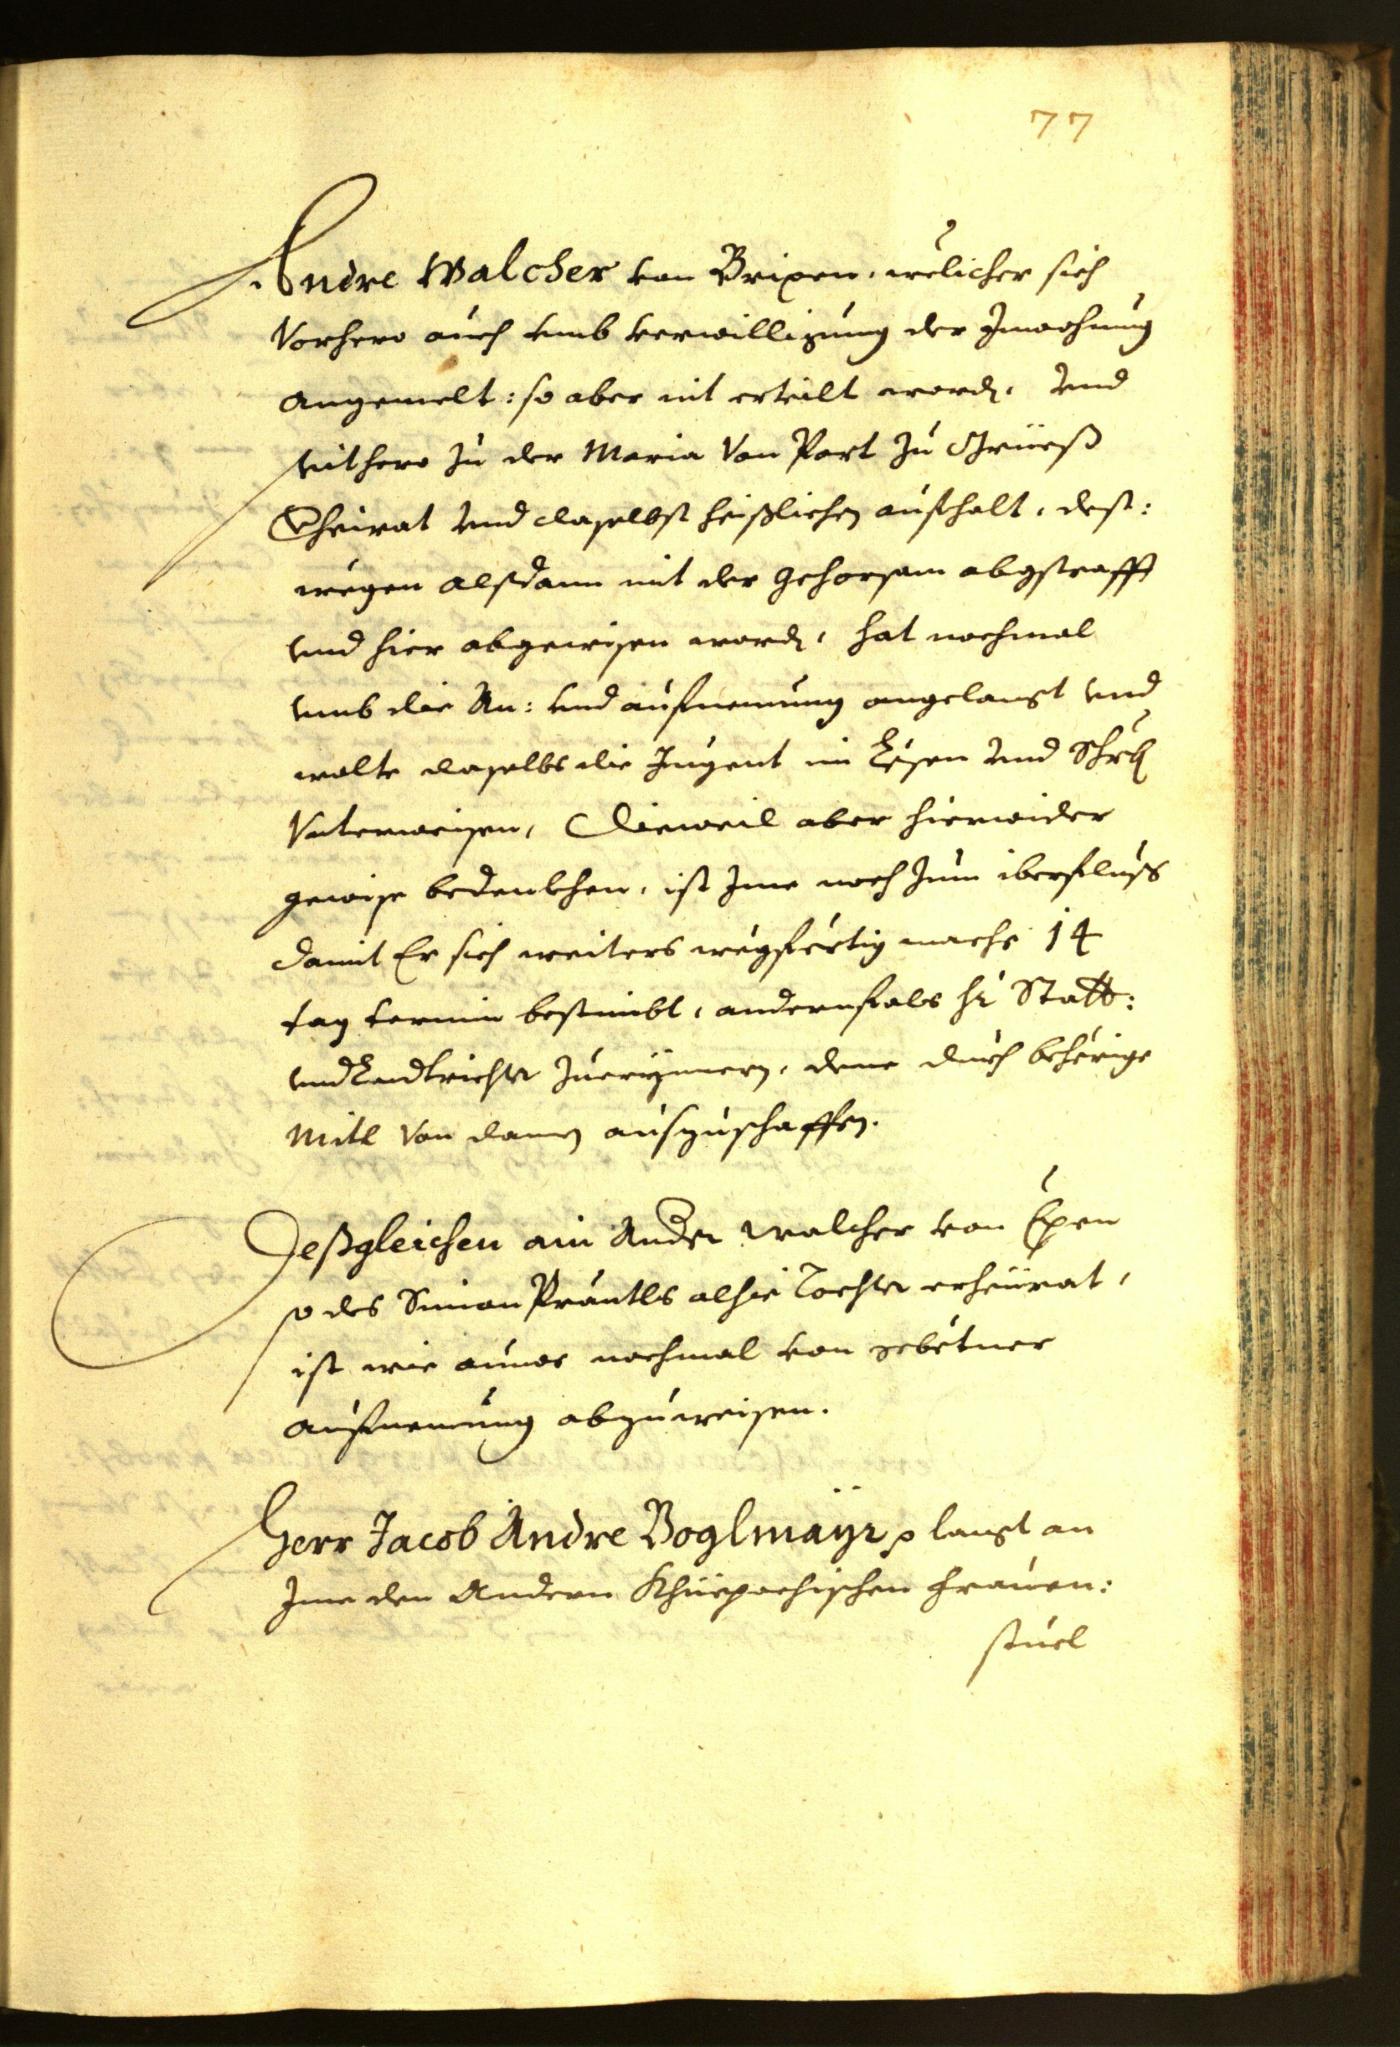 77
Andre Walcher von Brixen, welicher sich
Vorhero auch vmb verwilligung der Inwohnung
angemelt: so aber nit erteilt word, vnd
seithero zu der Maria Von Port zu
Eheirat vnd daselbst heißlichen aufhalt, dest:
wegen alßdann mit der gehorsam abgstrafft
vnd hier abgewisen word, hat nochmal
vmb die An: vnd aufnemung angelangt vnd
wolte daselbs die Jugent im Lesen vnd Schrb
Vnterweisen, Dieweil aber hierwider
gewise bedenkhen, ist Ime noch zum iberfluss
damit Er sich weiters wegfertig mache 14
tag termin bestimbt, andernfals hr Statt:
vnd Landtrichter zuerinnern, dene durch behörige
Mitl Von dannen auszuschaffen.
Deßgleichen ain Andre Walcher von Epen
so des Simon Präntls alhie Tochter erheürat,
ist wie aūuor nochmal von gebetner
aufnemung abzuweisen.
Herr Jacob Andre Voglmaÿr p langt an
Ime den Andern Khüepachischen Frauen:
stuel